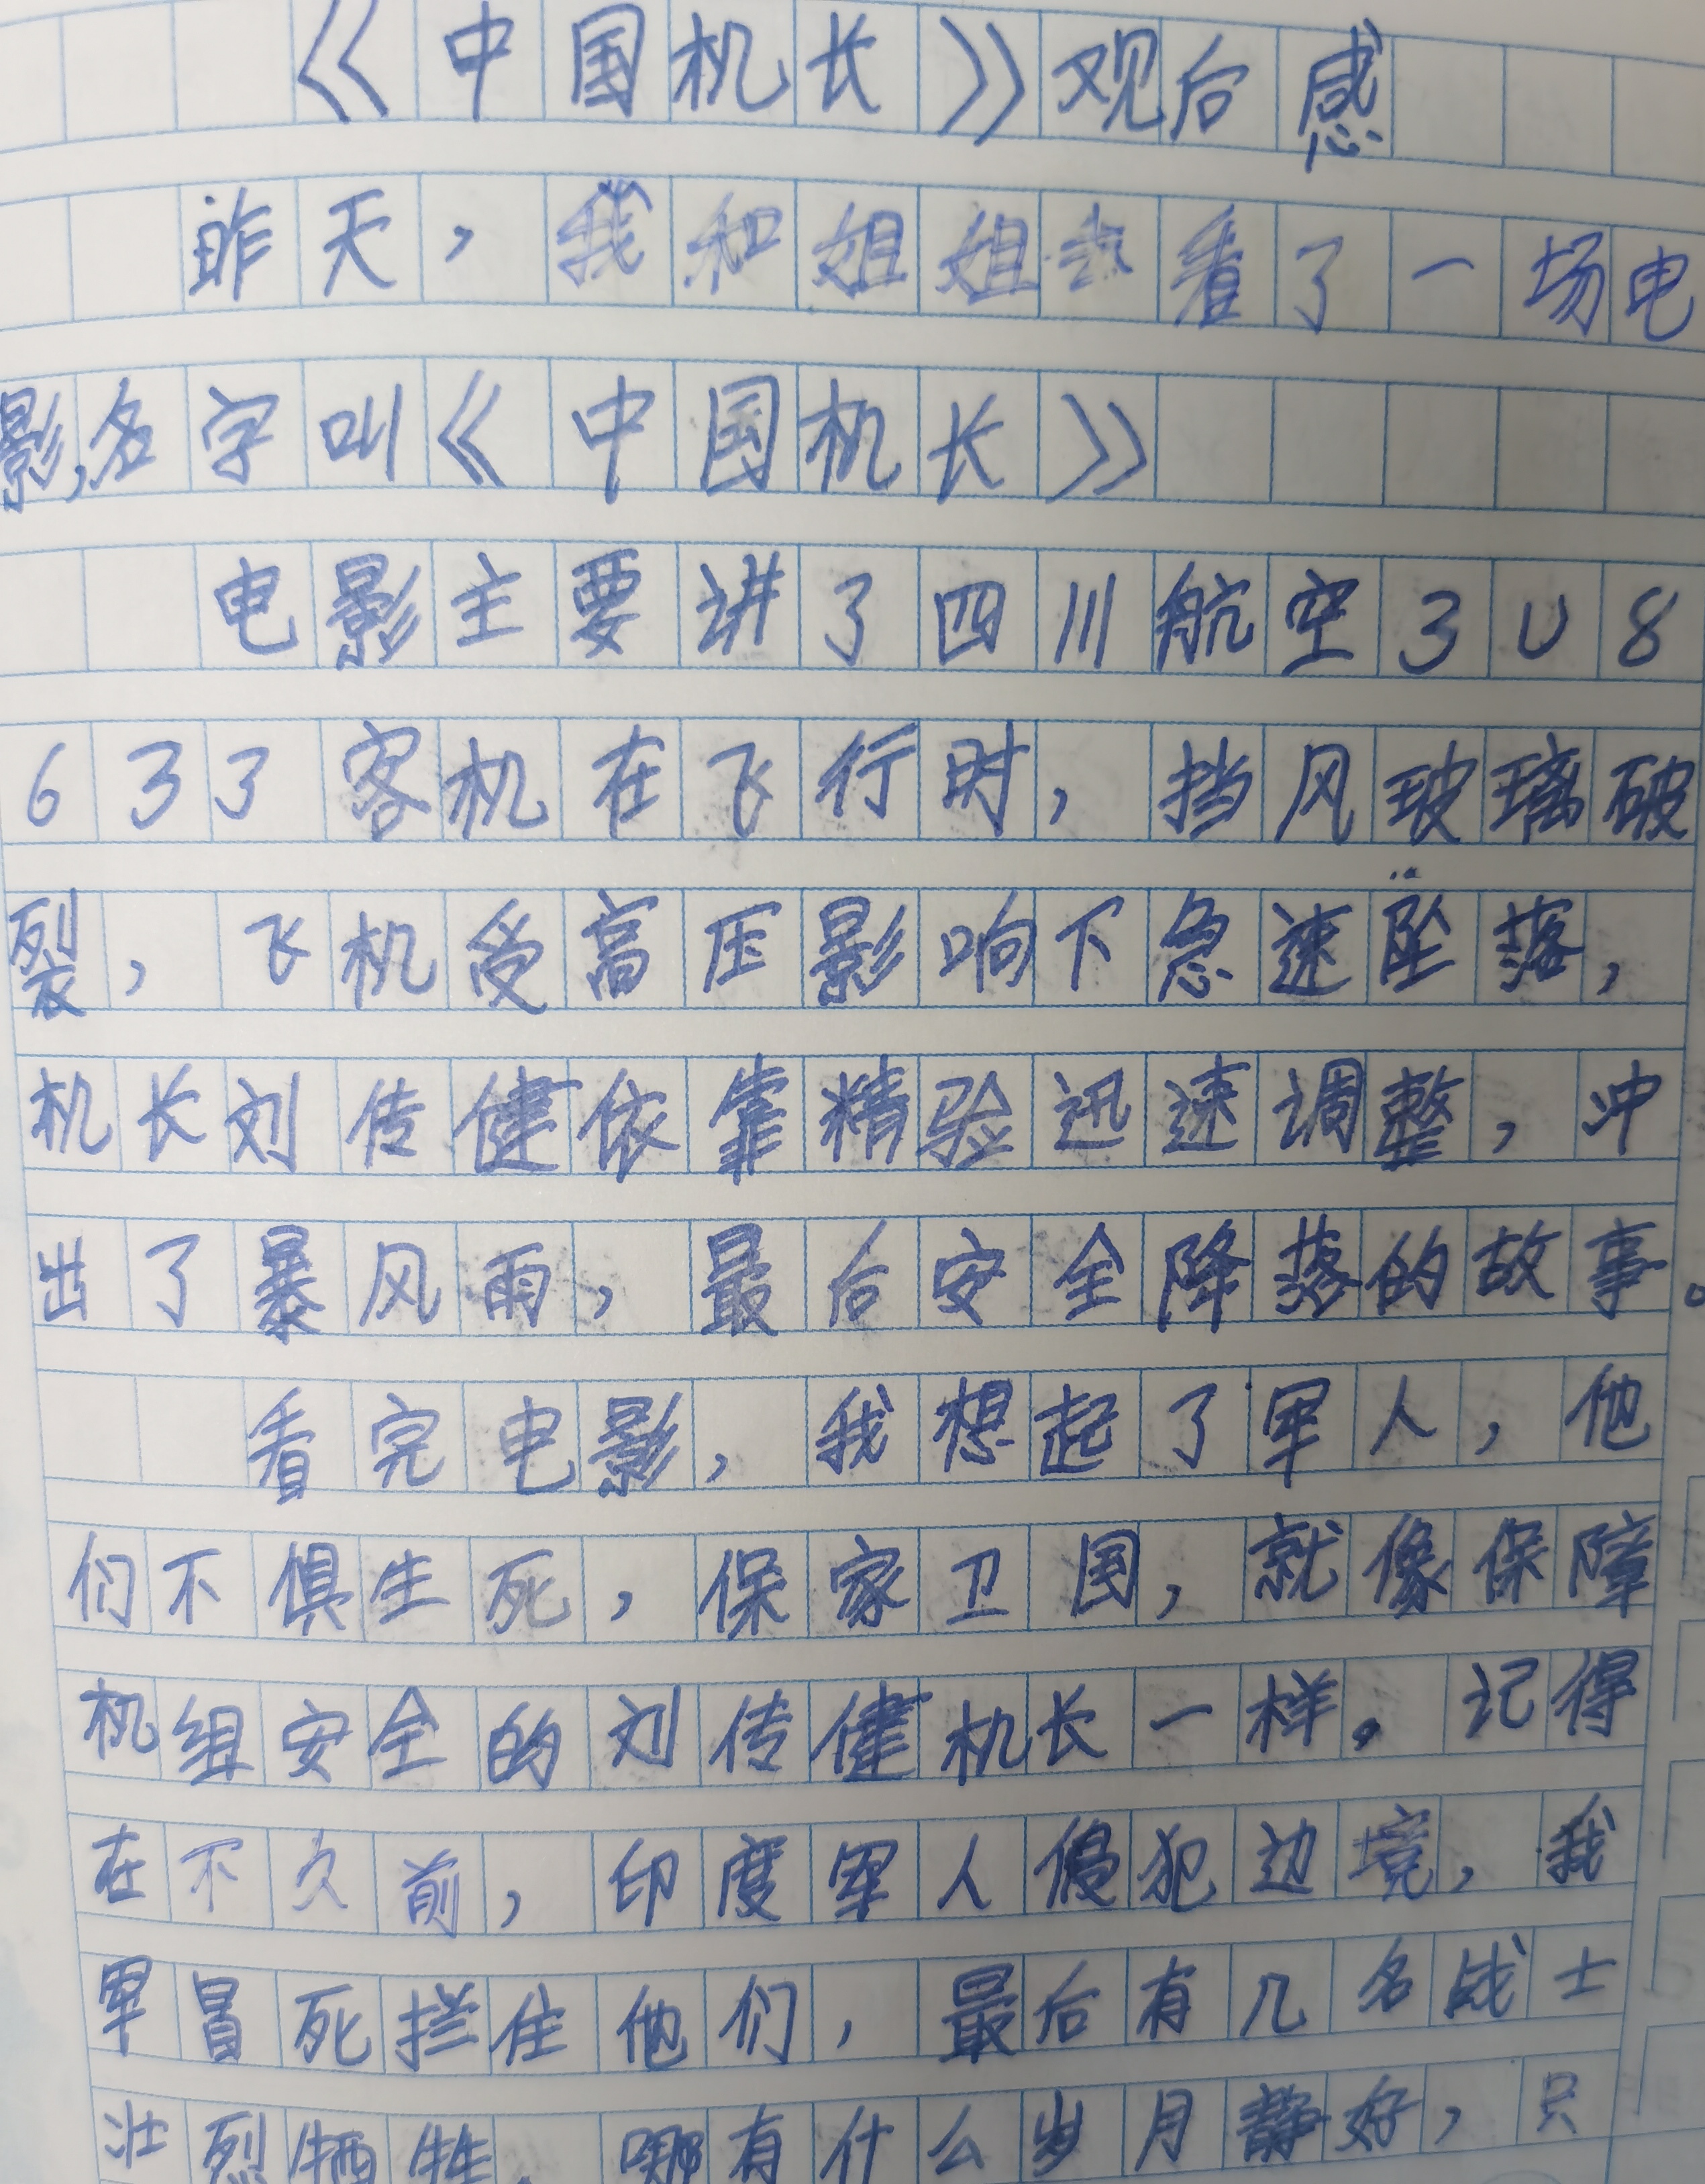 《中国机长》观后感
昨天，我和姐姐去看了一场电
影，名字叫《中国机长》
电影主要讲了四川航空3U8
633客机在飞行时，挡风玻璃破
裂，飞机受高压影响下急速坠落，
机长刘传健依靠精验迅速调整，冲
出了暴风雨，最后安全降落的故事。
看完电影，我想起了军人，他
们不惧生死，保家卫国，就像保障
机组安全的刘传健机长一样。记得
在不久前，印度军人侵犯边境，我
军冒死拦住他们，最后有几名战士
壮烈牺牲，哪有什么岁月静好，只